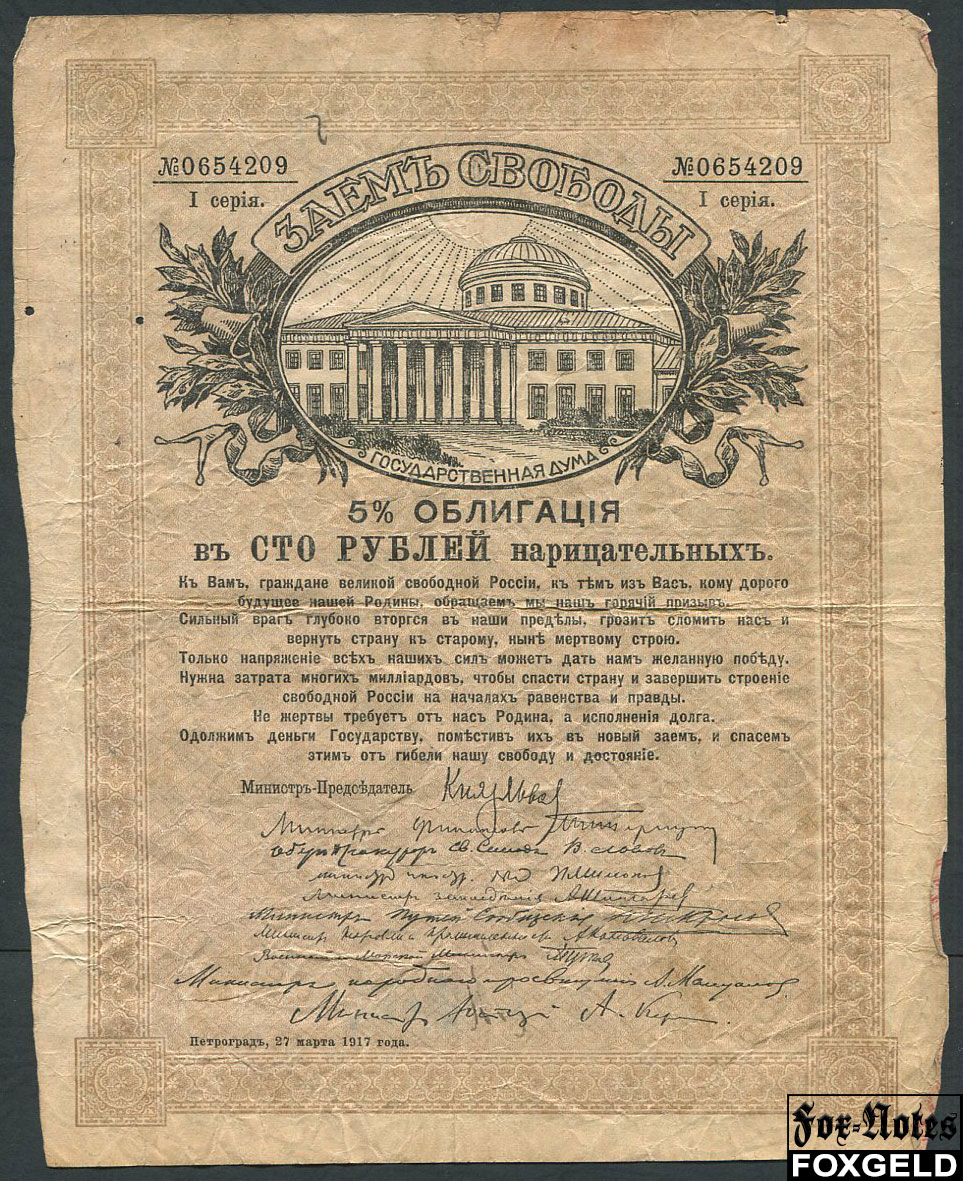 №0654209 №0654209
I серія. I серія.
ЗАЕМЪ СВОБОДЫ
ГОСУДАРСТВЕННАЯ ДУМА
5% ОБЛИГАЦІЯ
въ СТО РУБЛЕЙ нарицательныхъ.
Къ Вамъ, граждане великой свободной Россіи, къ тѣмъ изъ Васъ, кому дорого
будущее нашей Родины, обращаемъ мы нашъ горячій призывъ.
Сильный врагъ глубоко вторгся въ наши предѣлы, грозитъ сломить насъ и
вернуть страну къ старому, нынѣ мертвому строю.
Только напряженіе всѣхъ нашихъ силъ можетъ дать намъ желанную побѣду.
Нужна затрата многихъ милліардовъ, чтобы спасти страну и завершить строеніе
свободной Россіи на началахъ равенства и правды.
Не жертвы требуетъ отъ насъ Родина, а исполненія долга.
Одолжимъ деньги Государству, помѣстивъ ихъ въ новый заемъ, и спасемъ
этимъ отъ гибели нашу свободу и достояніе.
Министръ-Предсѣдатель Князь Львов
Министръ финансовъ
Оберъ Прокуроръ Св. Синода В. Львовъ
Министръ
Министръ земледѣлія А. Шингарев
Министръ Путей Сообщенія Н. Некрасов
Министр Торговли и Промышленности А. Коновалов
Военный и Морской Министръ
Министръ народнаго просвѣщенія А. Мануилов
Министр Юстиціи А. Кер
Петроградъ, 27 марта 1917 года.
Fox-Notes
FOXGELD